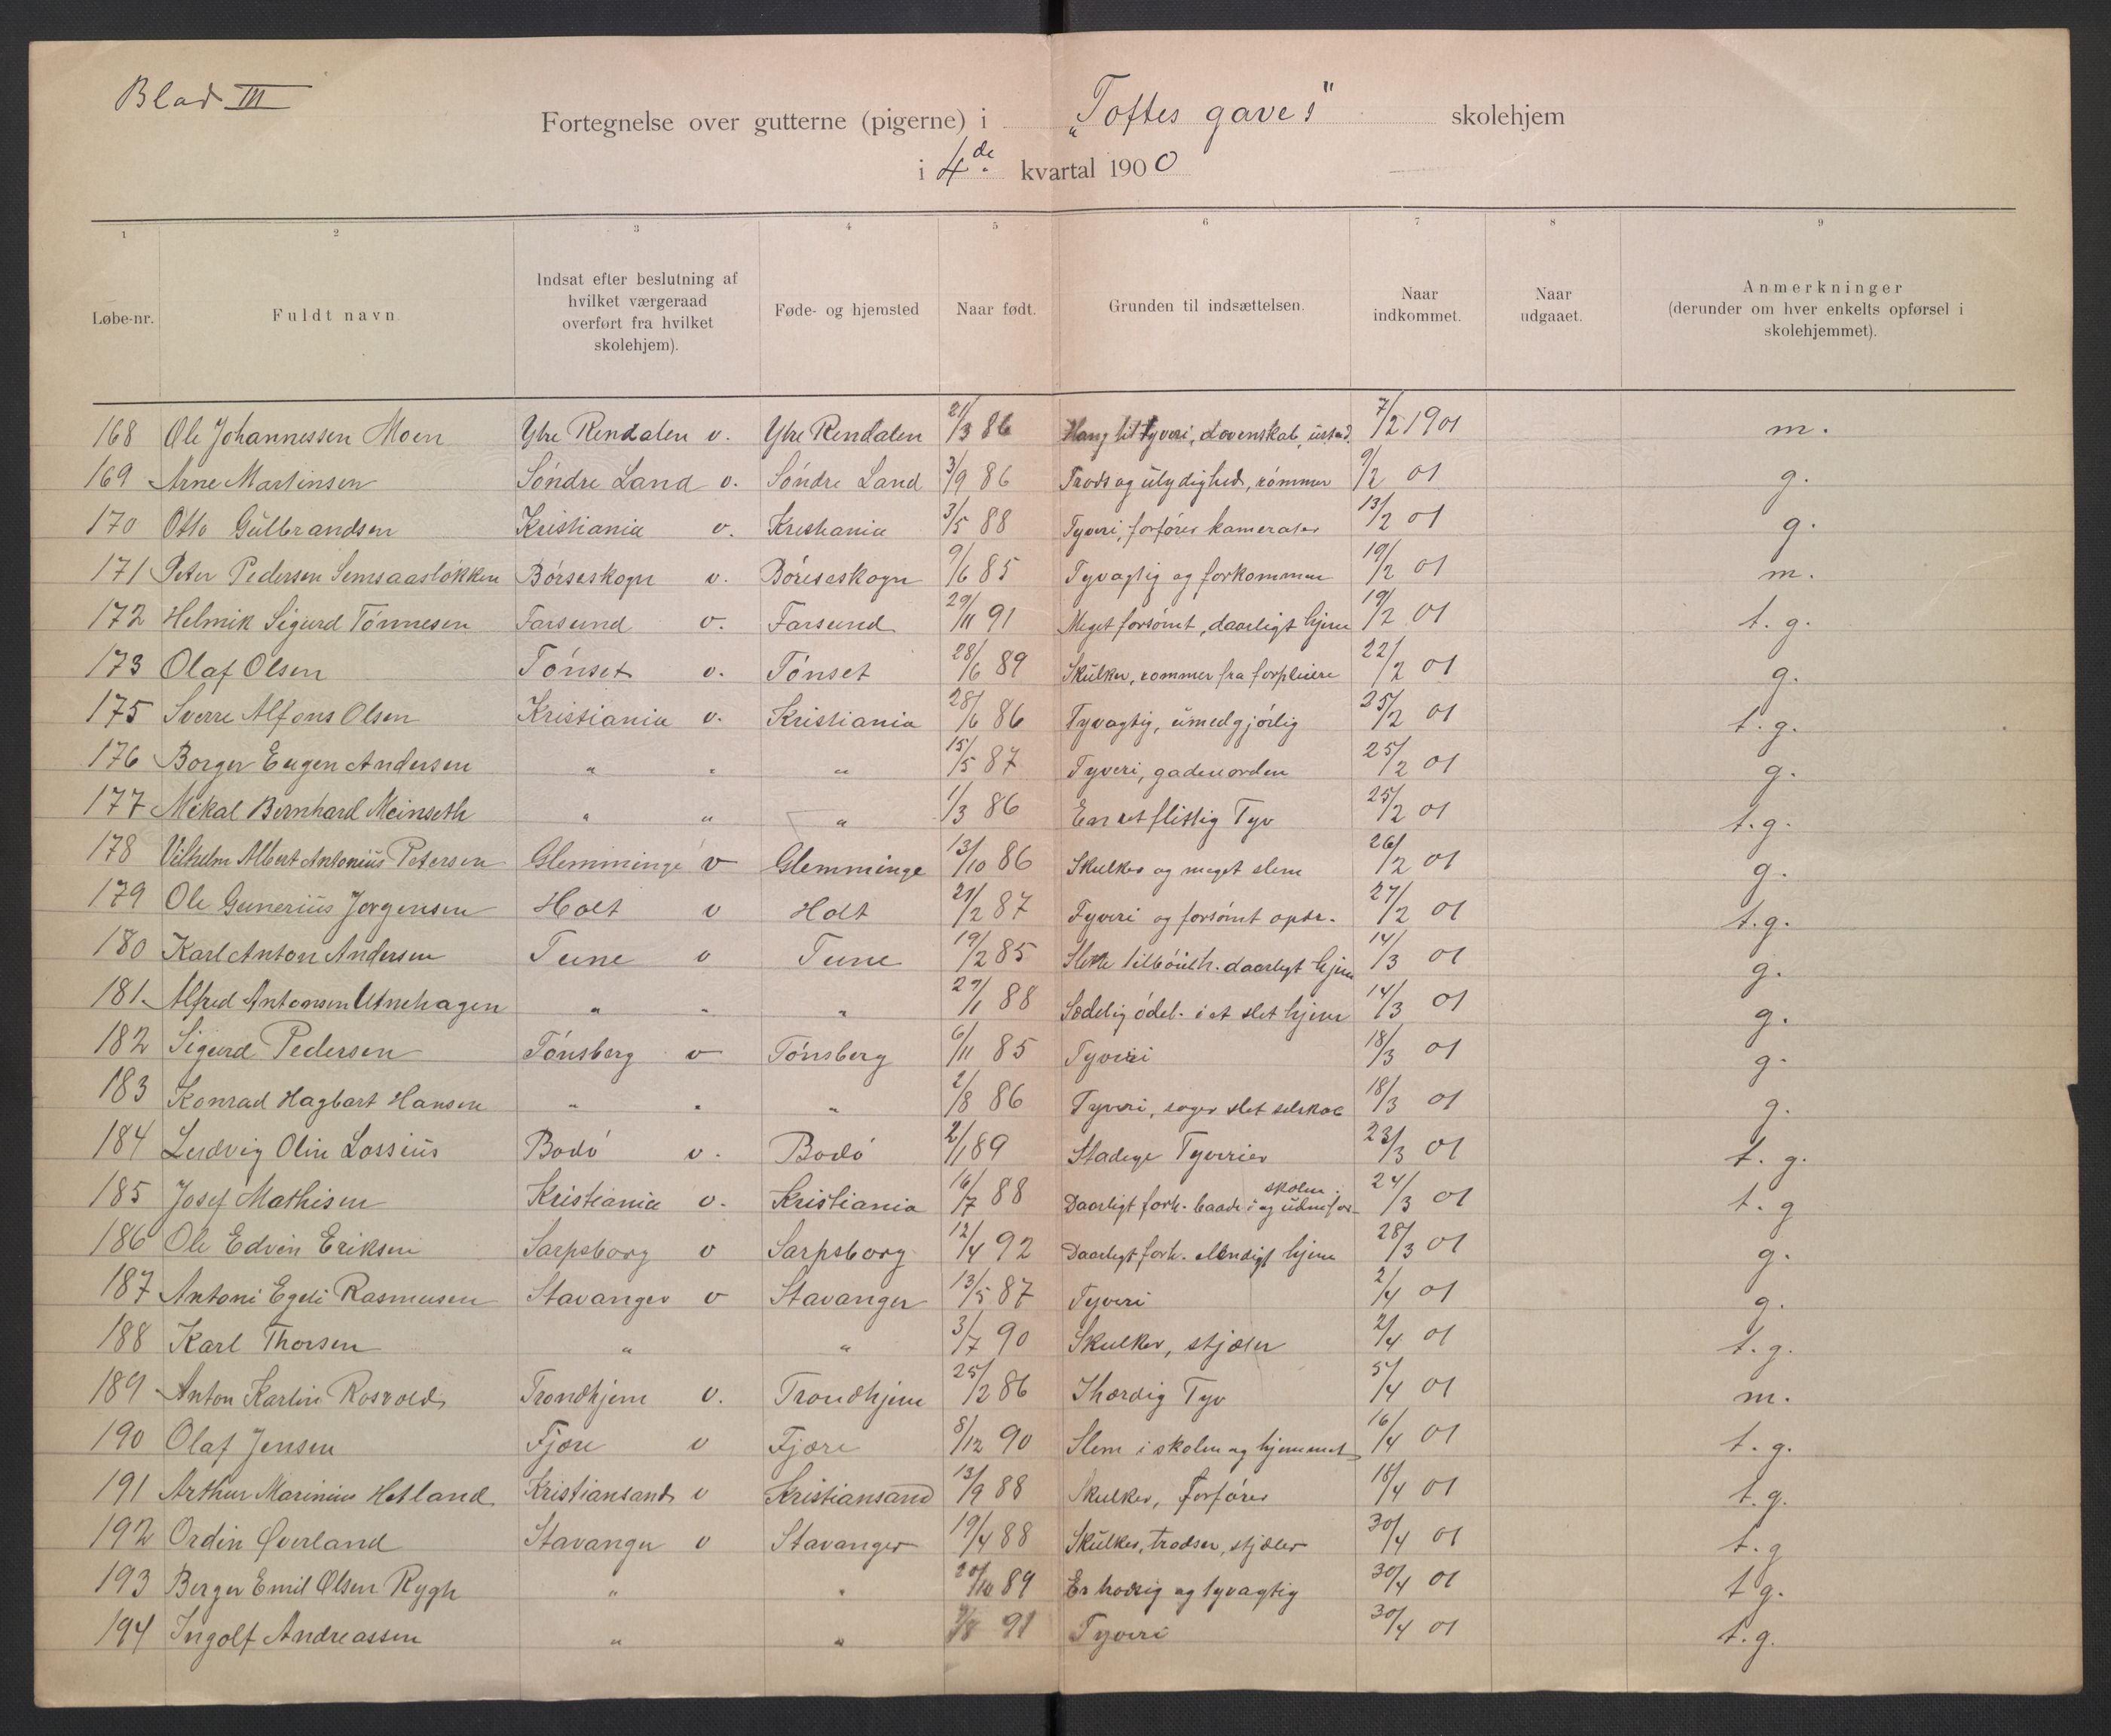 Blad III
Fortegnelse over gutterne (pigerne) i „Toftes gave's" skolehjem
i 4de. kvartal 1900
1 2 3 4 5 6 7 8 9
Løbe-nr. Fuldt navn Indsat efter beslutning af hvilket værgeraad overført fra hvilket skolehjem). Føde- og hjemsted Naar født. Grunden til indsættelsen. Naar indkommet. Naar udgaaet. Anmerkninger (derunder om hver enkelts opførsel i skolehjemmet).
168 Ole Johannessen Moen Ytre Rendalen v. Ytre Rendalen 21/3 86 Hang til tyveri, dovenskab, 7/2 1901 m.
169 Arne Martinsen Söndre Land v. Söndre Land 3/9 86 Trods og ulydighed, römmer 9/2 01 g.
170 Otto Gulbrandsen Kristiania v. Kristiania 3/5 88 Tyveri, forförer kamerater 13/2 01 g.
171 Peter Pedersen Semsaaslökken Börseskogn v. Börseskogn 9/6 85 Tyvagtig og forkommen 19/2 01 m.
172 Helmik Sigurd Tönnesen Farsund v. Farsund 29/11 91 Meget forsömt, daarligt hjem 19/2 01 t. g.
173 Olaf Olsen Tönset v. Tönset 28/6 89 Skulker, rommer fra forpleiere 22/2 01 g.
175 Sverre Alfons Olsen Kristiania v. Kristiania 28/6 86 Tyvagtig, umedgjörlig 25/2 01 t. g.
176 Borger Eugen Andersen " " " 15/5 87 Tyveri, gadeuorden 25/2 01 g.
177 Mikal Bernhard Meinseth " " " 1/3 86 En ret flittig Tyv 25/2 01 t. g.
178 Vilhelm Albert Antonius Petersen Glemminge v Glemminge 13/10 86 Skulker og meget slem 26/2 01 g.
179 Ole Gunerius Jorgensen Holt v Holt 21/2 87 Tyveri og forsömt opdr. 27/2 01 t. g.
180 Karl Anton Andersen Tune v Tune 19/2 85 Slette tilböieth. daarlygt hjem 14/3 01 g.
181 Alfred Antonsen Utnehagen " " " 27/1 88 Sædelig ödel. i et slet hjem 14/3 01 g.
182 Sigurd Pedersen Tönsberg v Tönsberg 6/11 85 Tyveri 18/3 01 g.
183 Konrad Hagbart Hansen " " " 2/8 86 Tyveri, söger slet selskab 18/3 01 g.
184 Ludvig Olin Lossius Bodö v. Bodö 2/1 89 Stadige Tyverier 23/3 01 t. g.
185 Josef Mathisen Kristiania v. Kristiania 16/7 88 Daarligt forh. baade i og udenfor skolen 24/3 01 t. g
186 Ole Edvin Eriksen Sarpsborg v Sarpsborg 12/4 92 Daarligt forh. elendigt hjem 28/3 01 g.
187 Antoni Egeli Rasmusen Stavanger v Stavanger 13/5 87 Tyveri 2/4 01 g.
188 Karl Thorsen " " 3/7 90 Skulker, stjæler 2/4 01 t. g.
189 Anton Karlin Rosvold Trondhjem v. Trondhjem 25/2 86 Ihærdig Tyv 5/4 01 m.
190 Olaf Jensen Fjære v Fjære 8/12 90 Slem i skolen og hjemmet 16/4 01 t. g.
191 Arthur Marinius Hetland Kristiansand v Kristiansand 13/9 88 Skulker, forförer 18/4 01 t. g.
192 Ordin Øverland Stavanger v Stavanger 19/4 88 Skulker, trodser, stjæler 30/4 01 t. g
193 Berger Emil Olsen Rygh " " 20/10 89 Er hadsig og tyvagtig 30/4 01 t g.
194 Ingolf Andreassen " " 91 Tyveri 30/4 01 t. g.